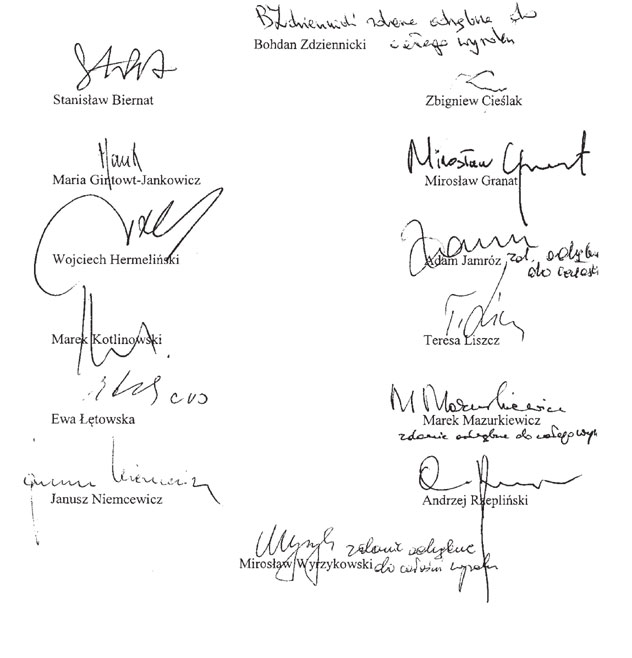 BZdziennicki zdanie odrębne do
Bohdan Zdziennicki całego wyroku
Stanisław Biernat
Zbigniew Cieślak
Maria Gintowt-Jankowicz
Mirosław Granat
Mirosław Granat
Wojciech Hermeliński
Adam Jamróz zd. odrębne
do całości
Marek Kotlinowski
Teresa Liszcz
Ewa Łętowska
M Mazurkiewicz
Marek Mazurkiewicz
zdanie odrębne do całego wyr
Janusz Niemcewicz
Janusz Niemcewicz
Andrzej Rzepliński
zdanie odrębne
Mirosław Wyrzykowski do całości wyroku